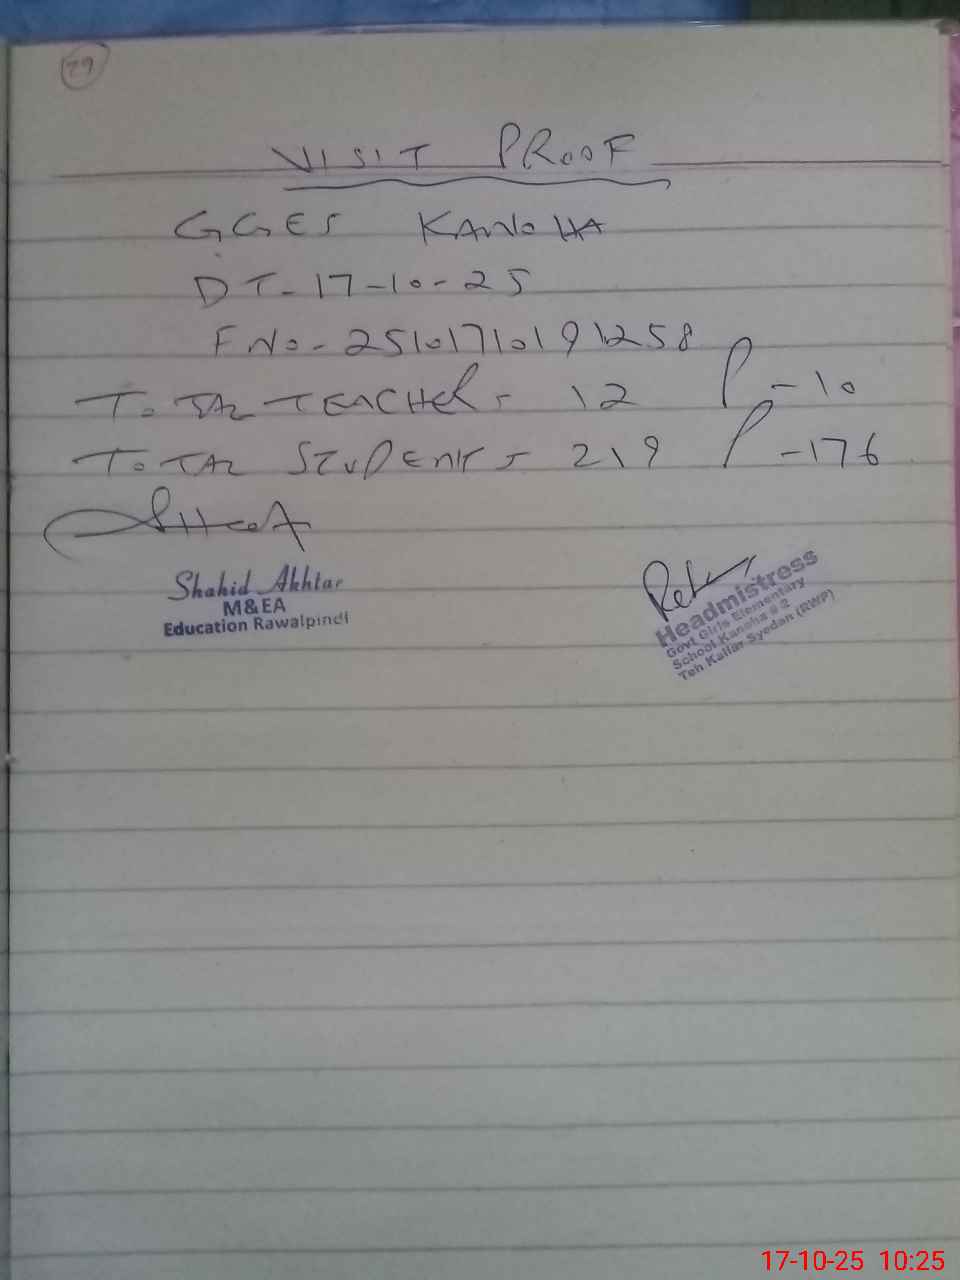 29
VISIT PROOF
GGES KANOHA
DT- 17-10-25
F NO- 25101710191258
TOTAL TEACHER - 12 P -10
TOTAL STUDENT - 219 P -176
Shahid Akhtar
M&EA
Education Rawalpindi
Headmistress
Govt Girls Elementary
School Kanoha # 2
Teh Kallar Syedan (RWP)
17-10-25 10:25